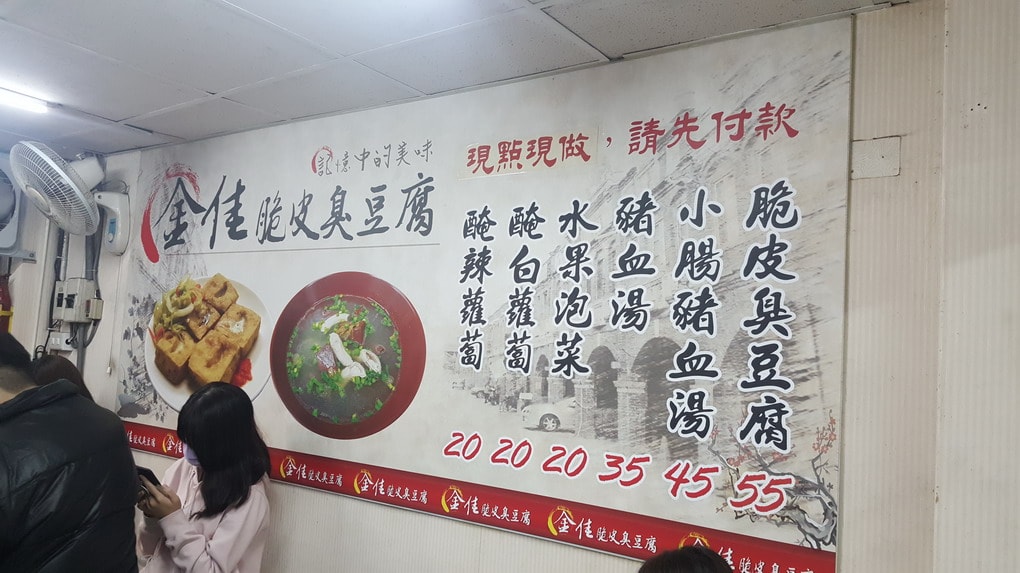 記憶中的美味
金佳脆皮臭豆腐
現點現做，請先付款
脆皮臭豆腐
55
小腸豬血湯
45
豬血湯
35
水果泡菜
20
醃白蘿蔔
20
醃辣蘿蔔
20
金佳脆皮臭豆腐
金佳脆皮臭豆腐
金佳脆皮臭豆腐
金佳脆皮臭豆腐
金佳脆皮臭豆腐